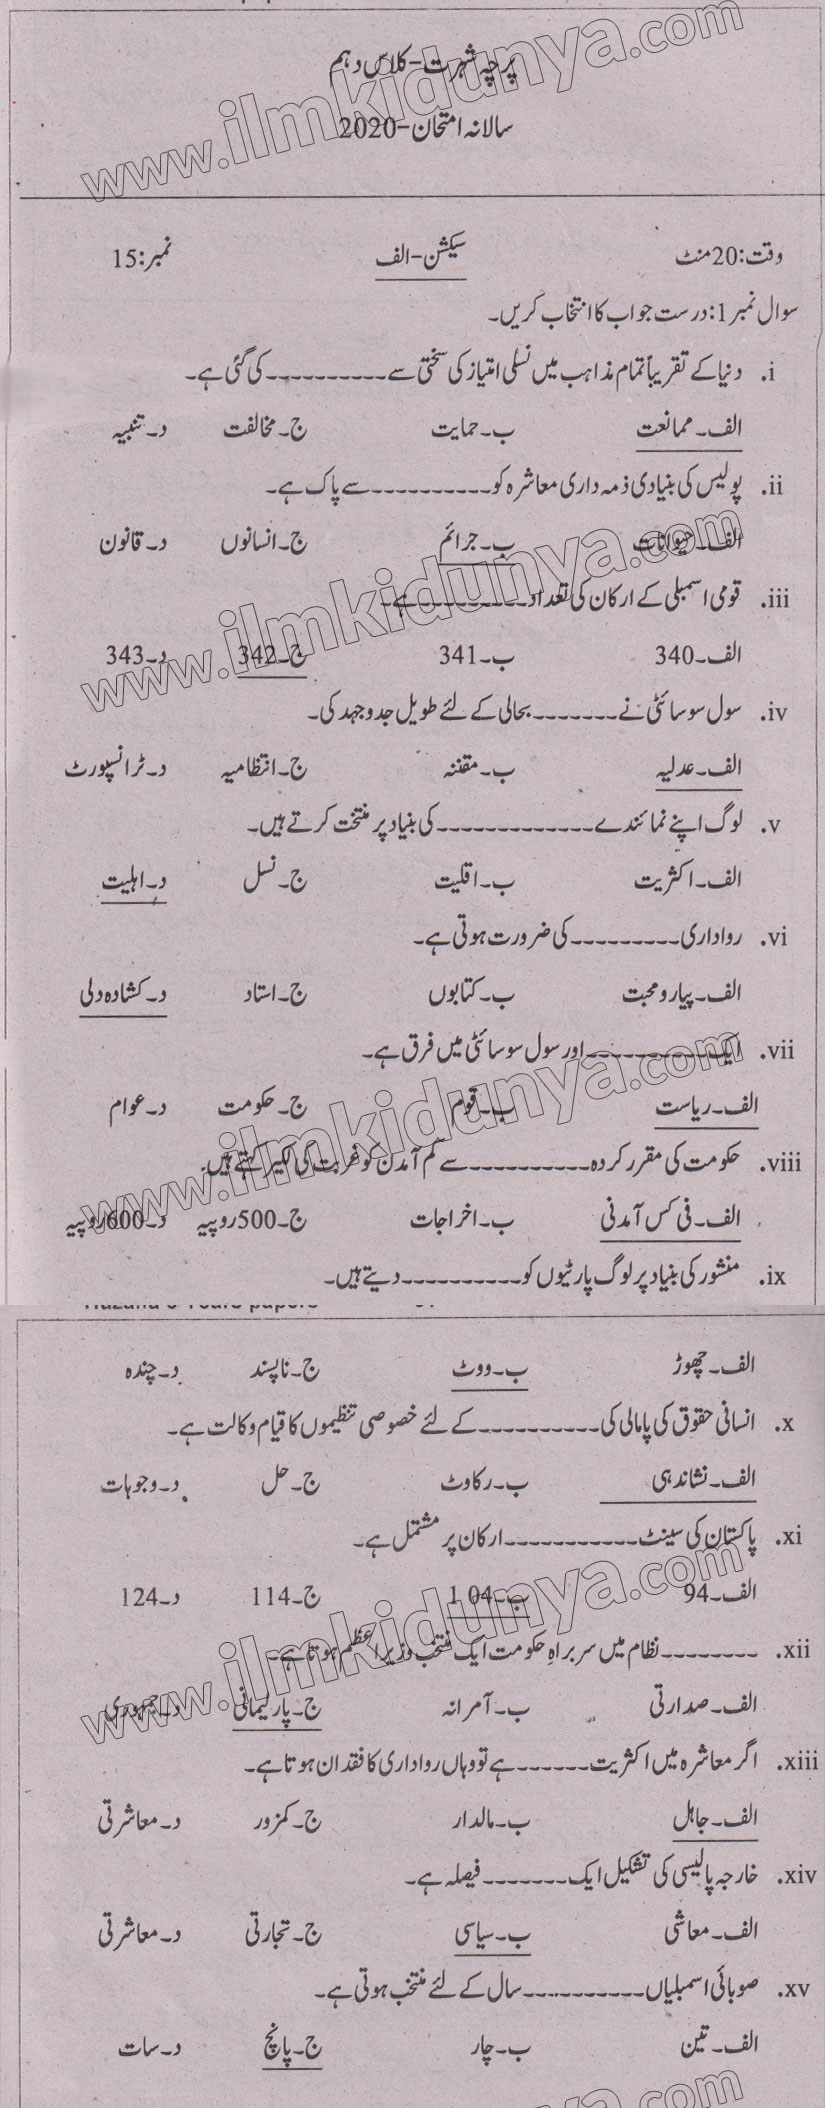 پرچہ شہریت-کلاس دہم
سالانہ امتحان-2020
وقت:20منٹ سیکشن-الف نمبر:15
سوال نمبر1:درست جواب کا انتخاب کریں۔
i. دنیا کے تقریباً تمام مذاہب میں نسلی امتیاز کی سختی سے---------- کی گئی ہے۔
الف۔ ممانعت ب۔حمایت ج۔مخالفت د۔تنبیہ
ii. پولیس کی بنیادی ذمہ داری معاشرہ کو----------سے پاک ہے۔
الف۔حیوانات ب۔جرائم ج۔انسانوں د۔قانون
iii. قومی اسمبلی کے ارکان کی تعداد----------ہے۔
الف۔340 ب۔341 ج۔342 د۔343
iv. سول سوسائٹی نے-------بحالی کے لئے طویل جدوجہد کی۔
الف۔عدلیہ ب۔مقننہ ج۔انتظامیہ د۔ٹرانسپورٹ
v. لوگ اپنے نمائندے-------------کی بنیاد پر منتخت کرتے ہیں۔
الف۔اکثریت ب۔اقلیت ج۔نسل د۔اہلیت
vi. رواداری---------کی ضرورت ہوتی ہے۔
الف۔پیارومحبت ب۔کتابوں ج۔استاد د۔کشادہ دلی
vii. ایک----------اور سول سوسائٹی میں فرق ہے۔
الف۔ریاست ب۔قوم ج۔حکومت د۔عوام
viii. حکومت کی مقرر کردہ----------سے کم آمدن کو غربت کی لکیر کہتے ہیں۔
الف۔فی کس آمدنی ب۔اخراجات ج۔500روپیہ د۔600روپیہ
ix. منشور کی بنیاد پر لوگ پارٹیوں کو----------دیتے ہیں۔
الف۔چھوڑ ب۔ووٹ ج۔ناپسند د۔چندہ
x. انسانی حقوق کی پامالی کی----------کے لئے خصوصی تنظیموں کا قیام وکالت ہے۔
الف۔نشاندہی ب۔رکاوٹ ج۔حل د۔وجوہات
xi. پاکستان کی سینٹ-----------ارکان پر مشتمل ہے۔
الف۔94 ب۔104 ج۔114 د۔124
xii. --------نظام میں سربراہِ حکومت ایک منتخب وزیراعظم ہوتا ہے۔
الف۔صدارتی ب۔آمرانہ ج۔پارلیمانی د۔جمہوری
xiii. اگر معاشرہ میں اکثریت------ہے تو وہاں رواداری کا فقدان ہوتا ہے۔
الف۔جاہل ب۔مالدار ج۔کمزور د۔معاشرتی
xiv. خارجہ پالیسی کی تشکیل ایک-------فیصلہ ہے۔
الف۔معاشی ب۔سیاسی ج۔تجارتی د۔معاشرتی
xv. صوبائی اسمبلیاں----------سال کے لئے منتخب ہوتی ہے۔
الف۔تین ب۔چار ج۔پانچ د۔سات
www.ilmkidunya.com
www.ilmkidunya.com
www.ilmkidunya.com
www.ilmkidunya.com